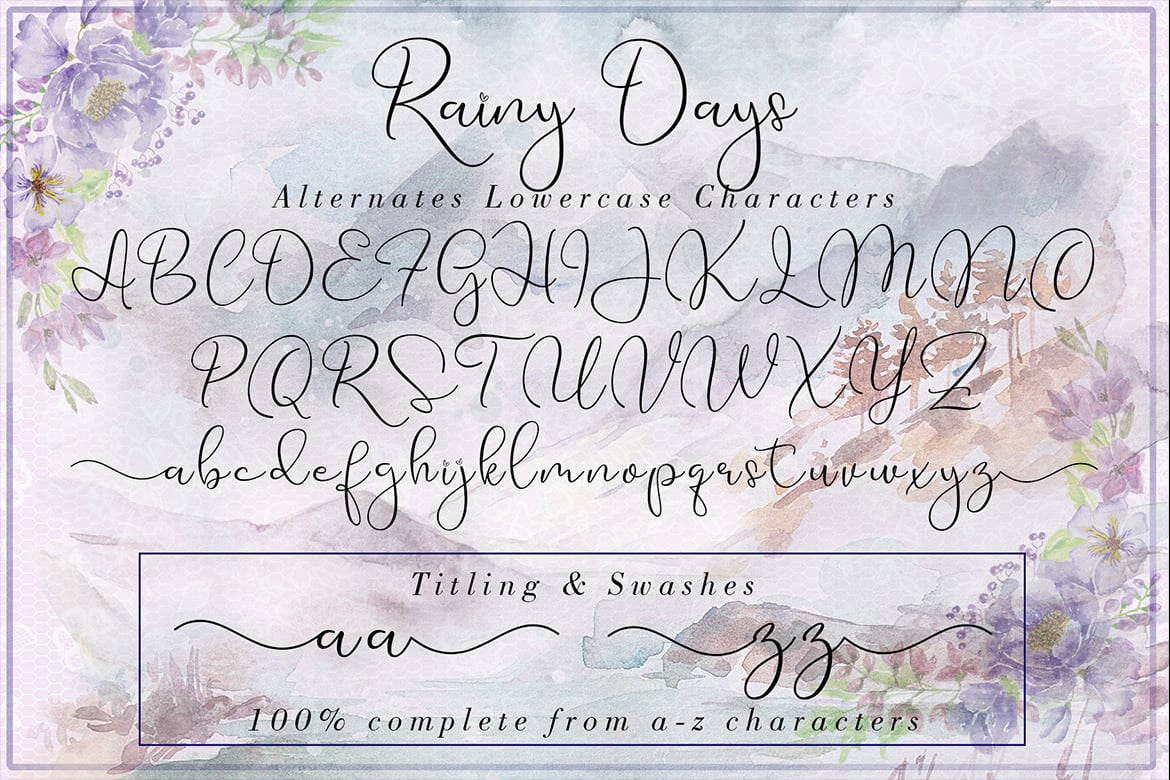 Rainy Days
Alternates Lowercase Characters
ABCDEFGHIJKLMNO
PQRSTUVWXYZ
abcdefghijklmnopqrstuvwxyz
Titling & Swashes
aa zz
100% complete from a-z characters